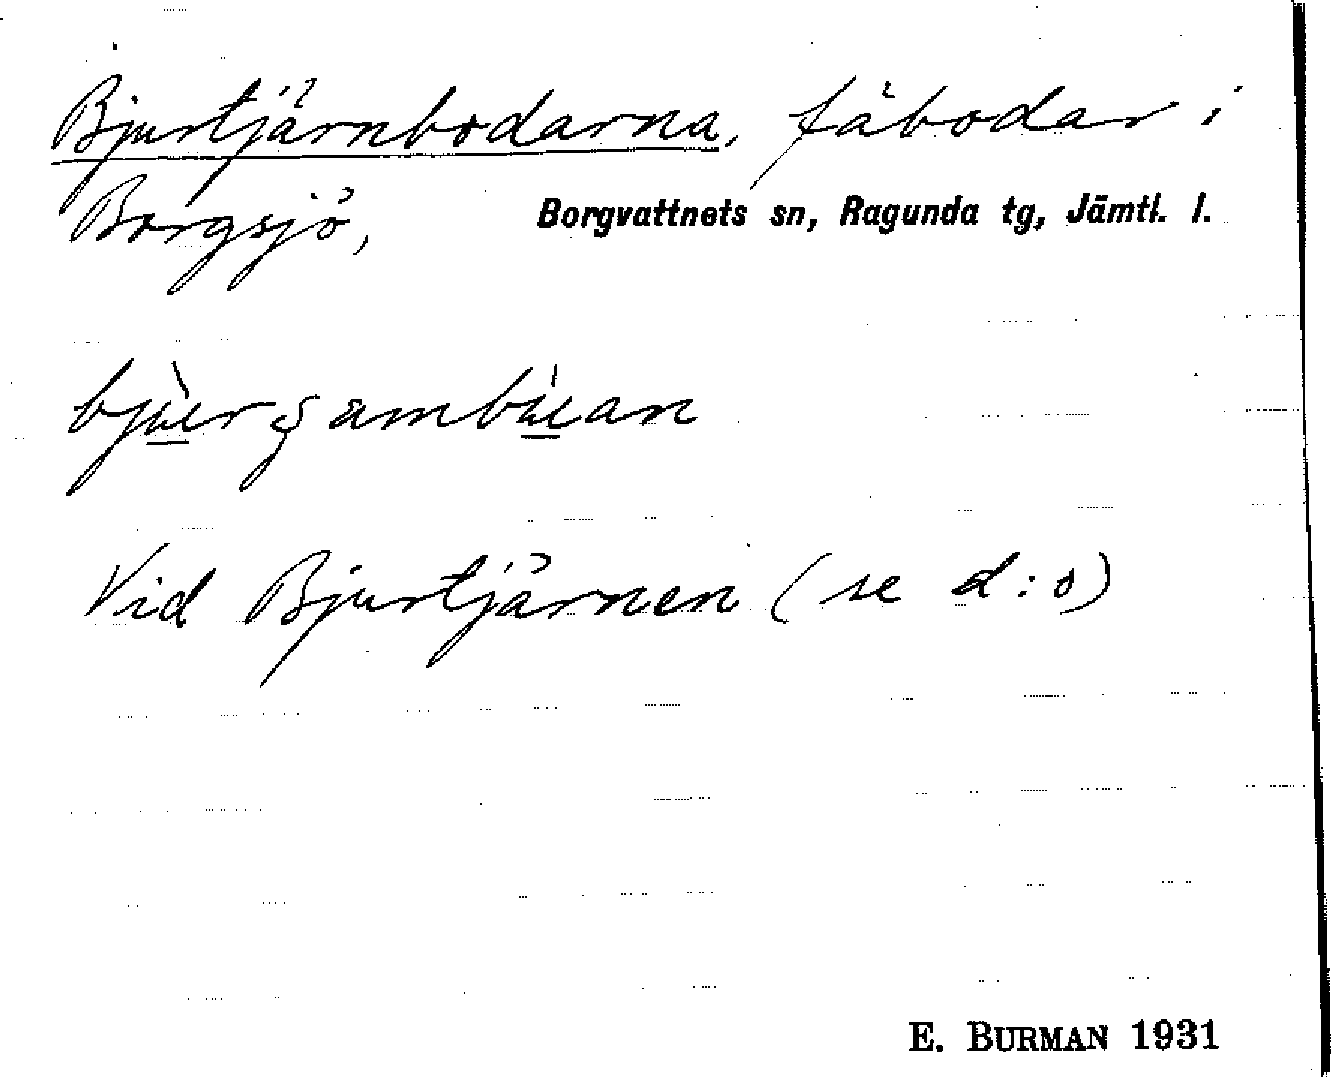 Bjurtjärnbodarna, fäbodar i
Borgsjö, Borgvattnets sn, Ragunda tg, Jämtl. l.
Vid Bjurtjärnen (se d:o)
E. BURMAN 1931